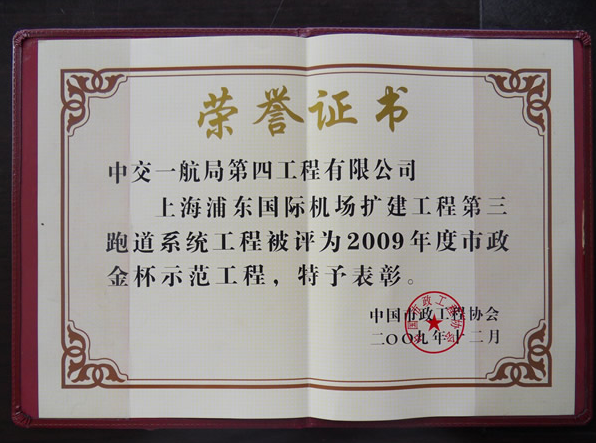 荣誉证书
中交一航局第四工程有限公司
上海浦东国际机场扩建工程第三
跑道系统工程被评为2009年度市政
金杯示范工程，特予表彰。
中国市政工程协会
二〇〇九年十二月
中国市政工程协会